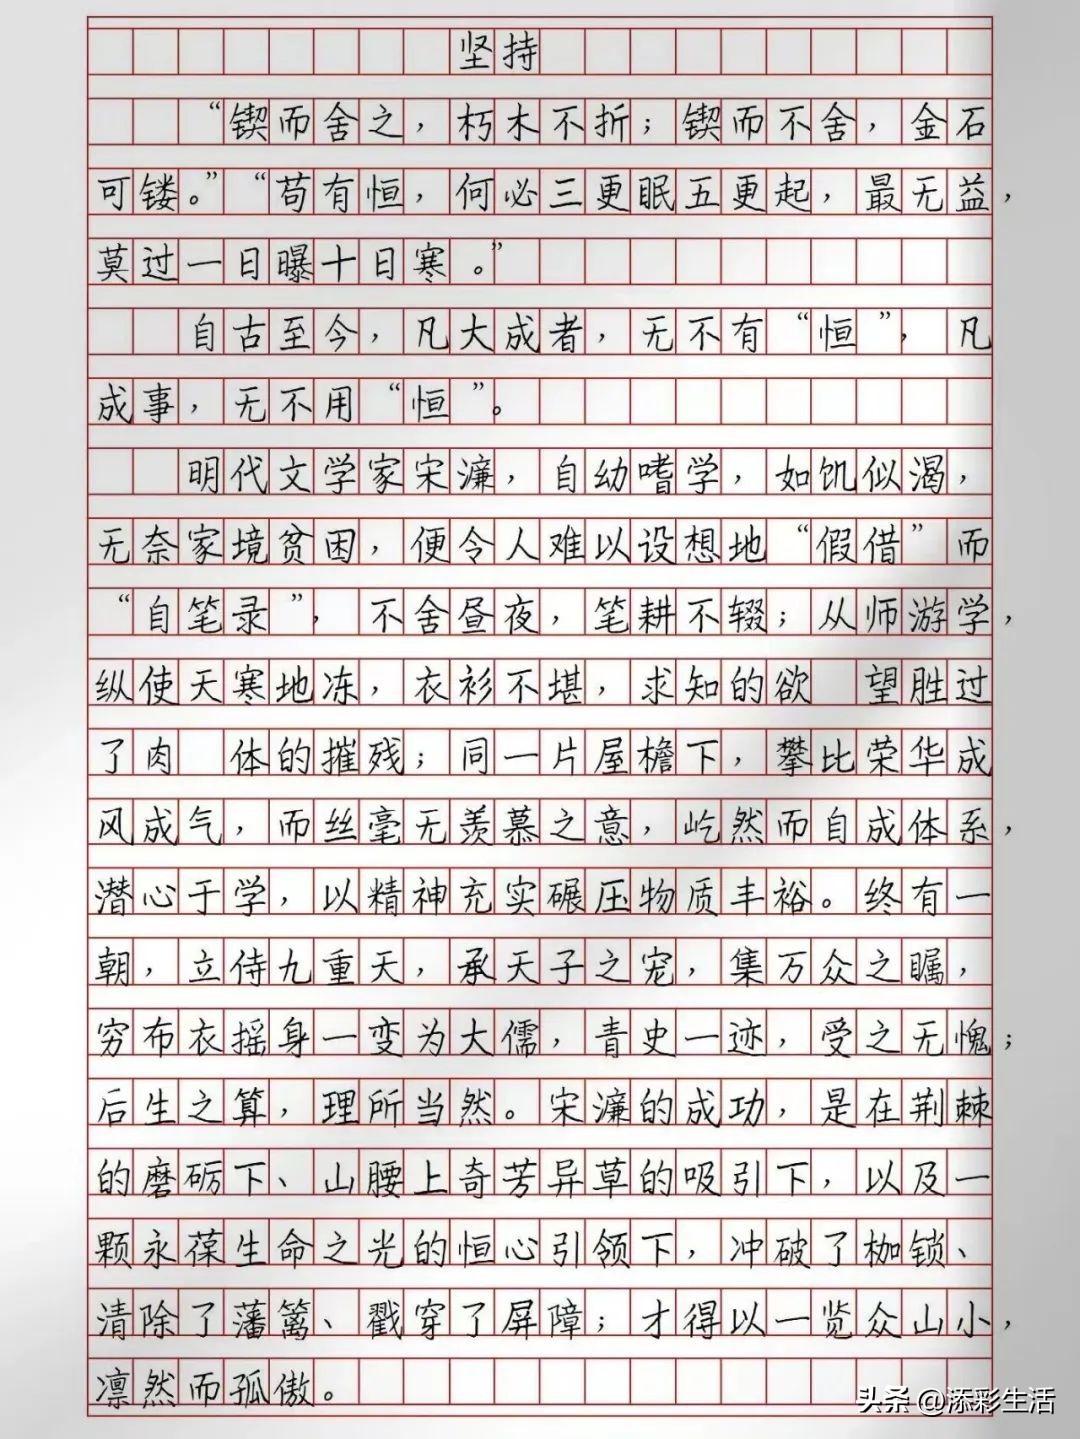 坚持
“锲而舍之，朽木不折；锲而不舍，金石
可镂。”“苟有恒，何必三更眠五更起，最无益，
莫过一日曝十日寒。”
自古至今，凡大成者，无不有“恒”，凡
成事，无不用“恒”。
明代文学家宋濂，自幼嗜学，如饥似渴，
无奈家境贫困，便令人难以设想地“假借”而
“自笔录”，不舍昼夜，笔耕不辍；从师游学，
纵使天寒地冻，衣衫不堪，求知的欲 望胜过
了肉 体的摧残；同一片屋檐下，攀比荣华成
风成气，而丝毫无羡慕之意，屹然而自成体系，
潜心于学，以精神充实碾压物质丰裕。终有一
朝，立侍九重天，承天子之宠，集万众之瞩，
穷布衣摇身一变为大儒，青史一迹，受之无愧；
后生之算，理所当然。宋濂的成功，是在荆棘
的磨砺下、山腰上奇芳异草的吸引下，以及一
颗永葆生命之光的恒心引领下，冲破了枷锁、
清除了藩篱、戳穿了屏障；才得以一览众山小，
凛然而孤傲。
头条@添彩生活